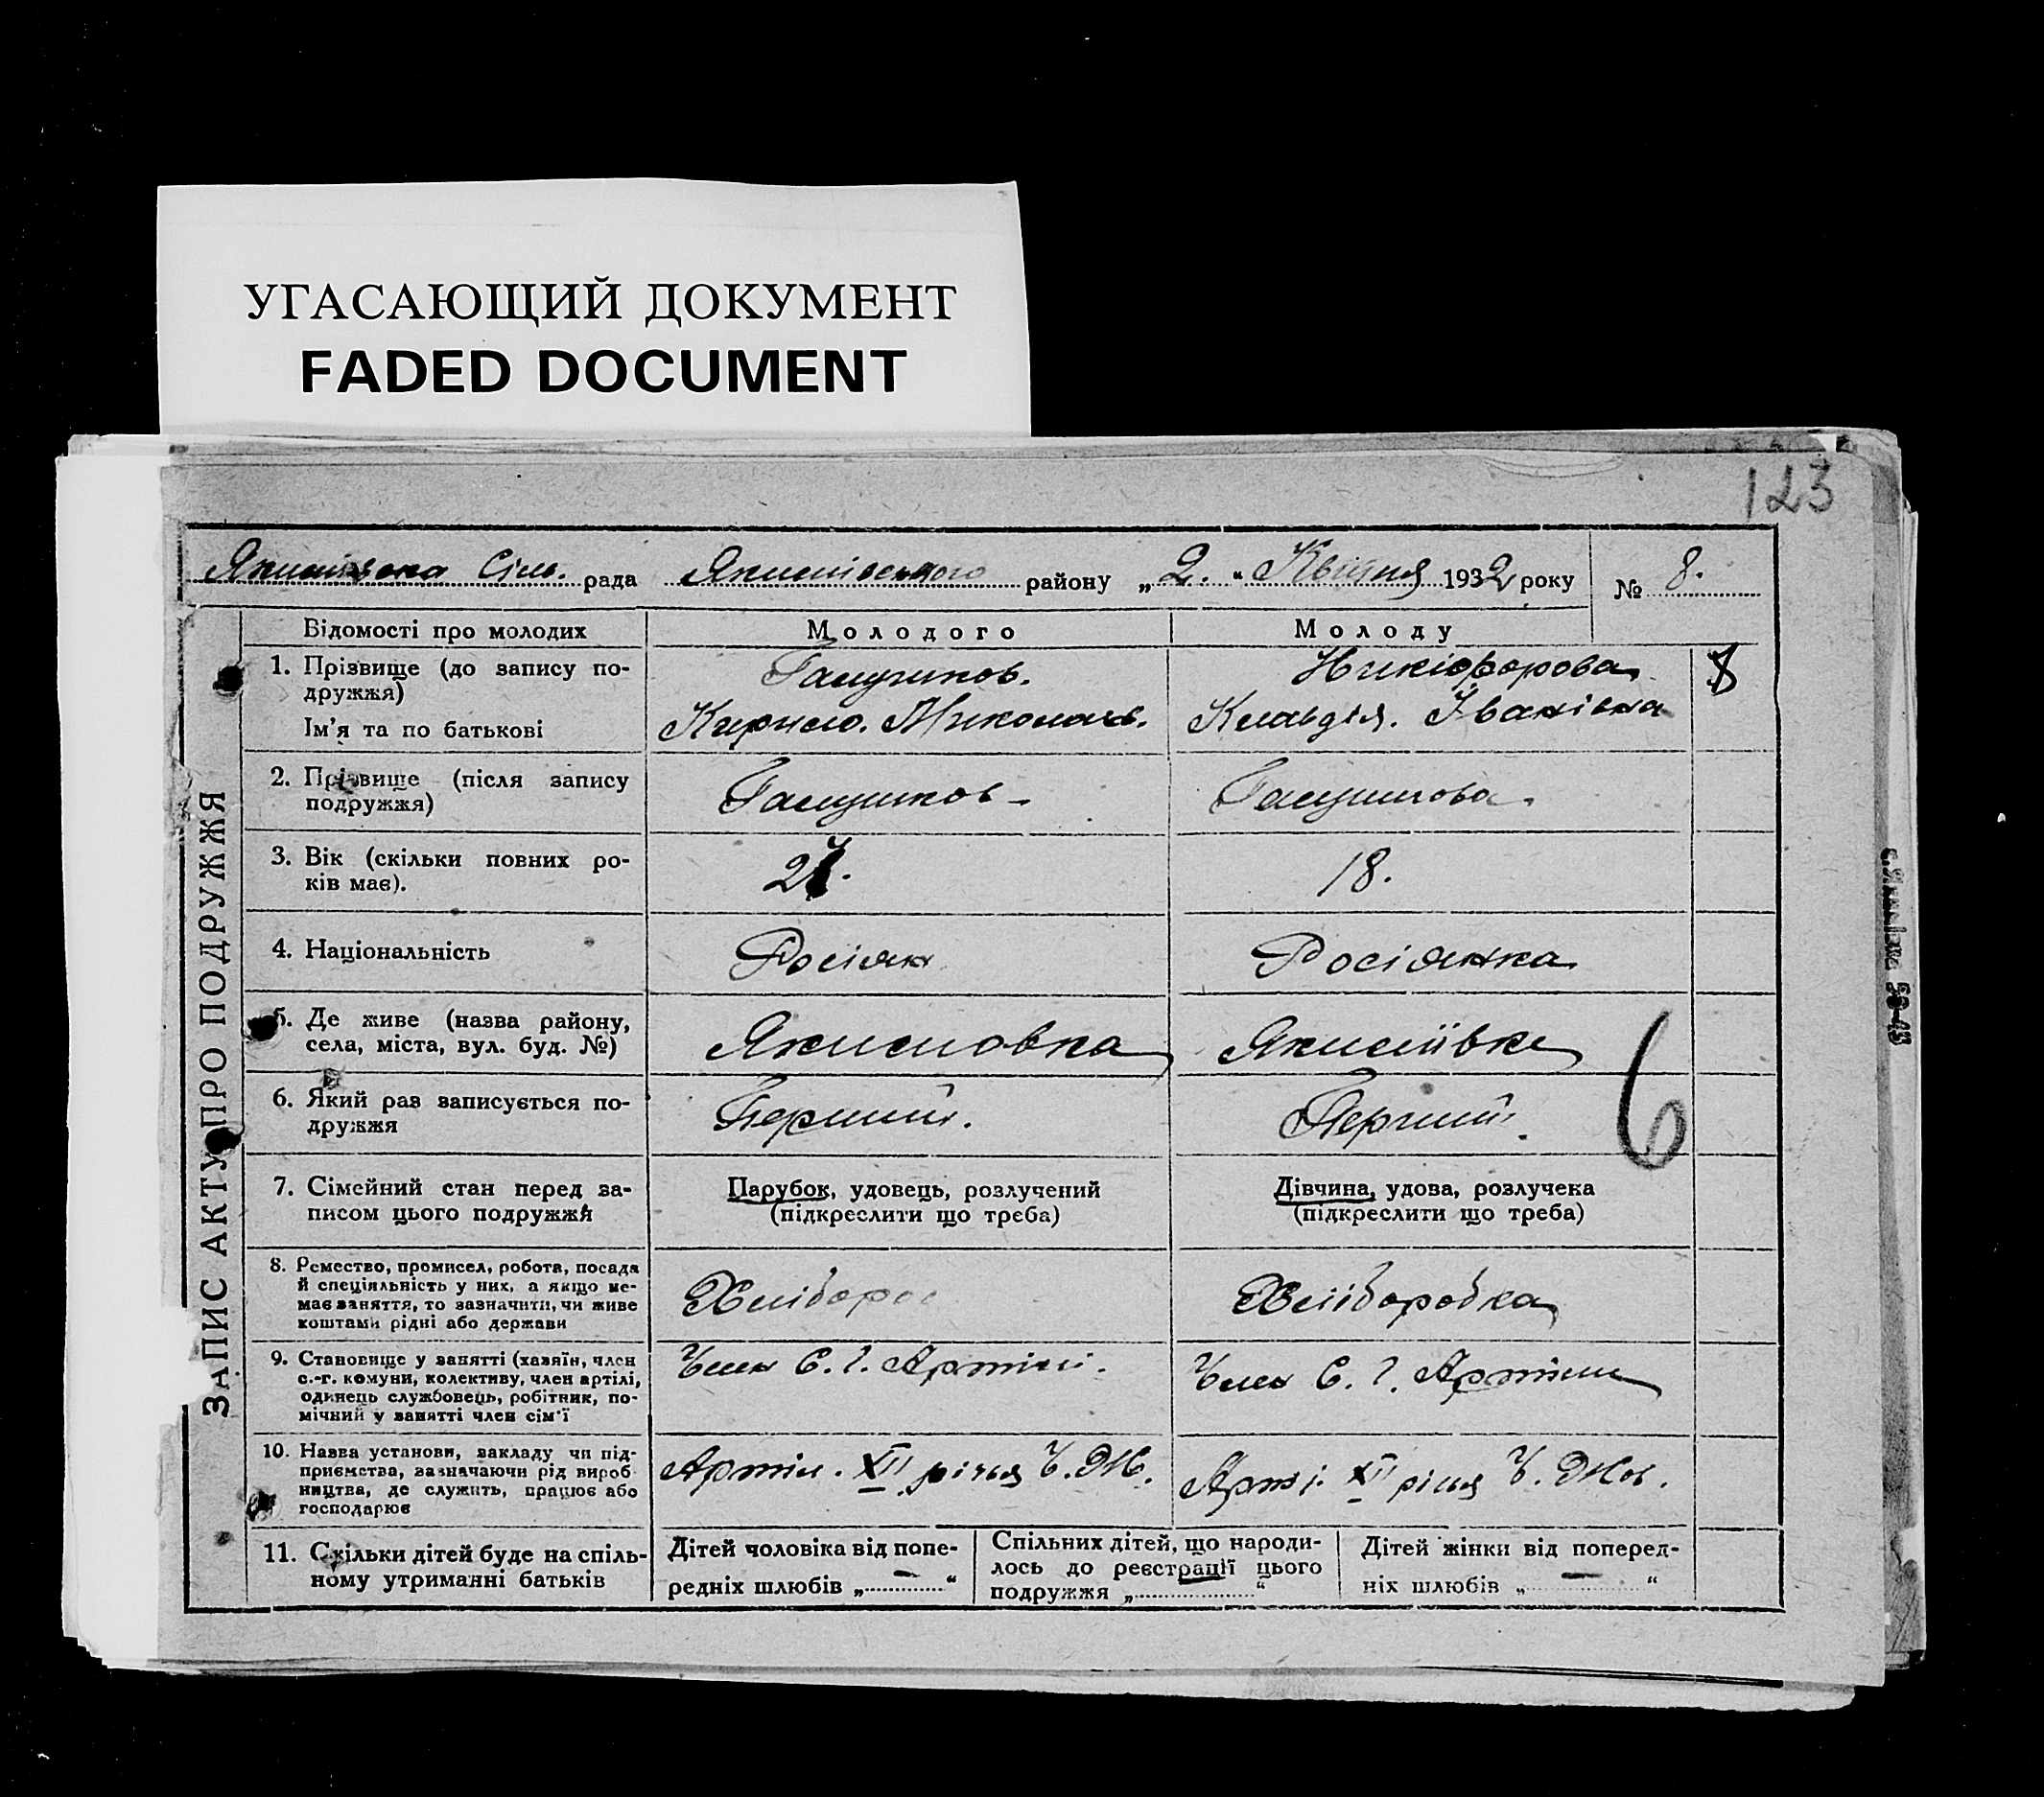 УГАСАЮЩИЙ ДОКУМЕНТ
FADED DOCUMENT
123
Якимівська Сіль. рада Якимівського району „2.“ Квітня 1932 року № 8.
ЗАПИС АКТУ ПРО ПОДРУЖЖЯ
Відомості про молодих Молодого Молоду
1. Прізвище (до запису подружжя) Нікіфорова 8
Ім'я та по батькові Кирило. Миколаїв. Клавдія. Іванівна
2. Прізвище (після запису
подружжя)
3. Вік (скільки повних ро-
ків має). 18.
4. Національність Росіян Росіянка
5. Де живе (назва району,
села, міста, вул. буд. №) Якимовка Якимівка
6. Який раз записується по-
дружжя Перший. Перший.
6
7. Сімейний стан перед за-
писом цього подружжя
Парубок, удовець, розлучений
(підкреслити що треба)
Дівчина, удова, розлучена
(підкреслити що треба)
8. Ремество, промисел, робота, посада
й спеціяльність у них, а якщо не-
має заняття, то зазначити, чи живе
коштами рідні або держави
Хлібороб Хліборобка
9. Становище у занятті (хазяїн, член
с.-г. комуни, колективу, член артілі,
одинець службовець, робітник, по-
мічний у занятті член сім'ї
Член С. Г. Артілі. Член С. Г. Артіли
10. Назва установи, закладу чи під-
приємства, зазначаючи рід вироб
ництва, де служить, працює або
господарює
Артіл. XII річчя Ч. Ж. Арті. XII річчя Ч. Жов.
11. Скільки дітей буде на спіль-
ному утриманні батьків
Дітей чоловіка від попе-
редніх шлюбів „—“
Спільних дітей, що народи-
лось до реєстрації цього
подружжя „—“
Дітей жінки від поперед-
ніх шлюбів „—“